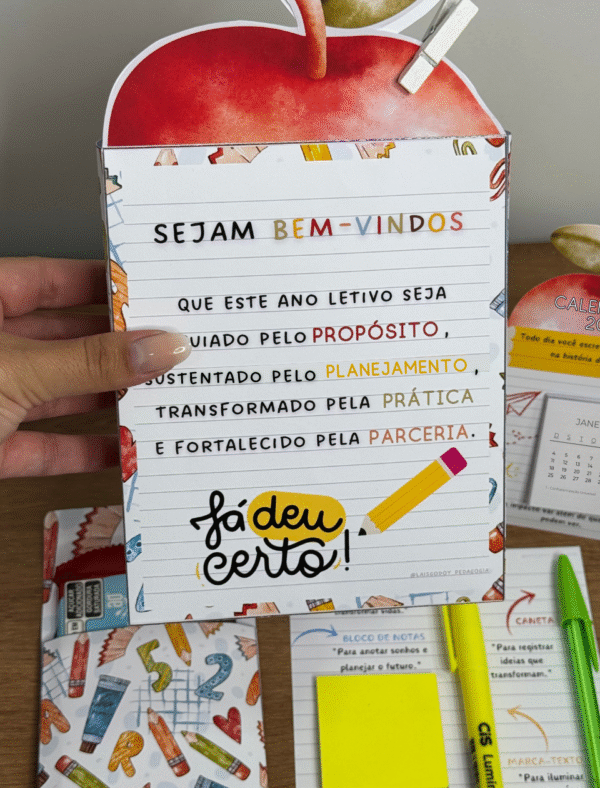 SEJAM BEM-VINDOS
QUE ESTE ANO LETIVO SEJA
PELO PROPÓSITO,
SUSTENTADO PELO PLANEJAMENTO,
TRANSFORMADO PELA PRÁTICA
E FORTALECIDO PELA PARCERIA.
Já deu
certo!
Todo dia você
na história
JANE
podem ver.
BLOCO DE NOTAS
"Para anotar sonhos e
planejar o futuro."
CANETA
"Para registrar
ideias que
transformam."
MARCA-TEXTO
"Para iluminar
CiS
5
2
R